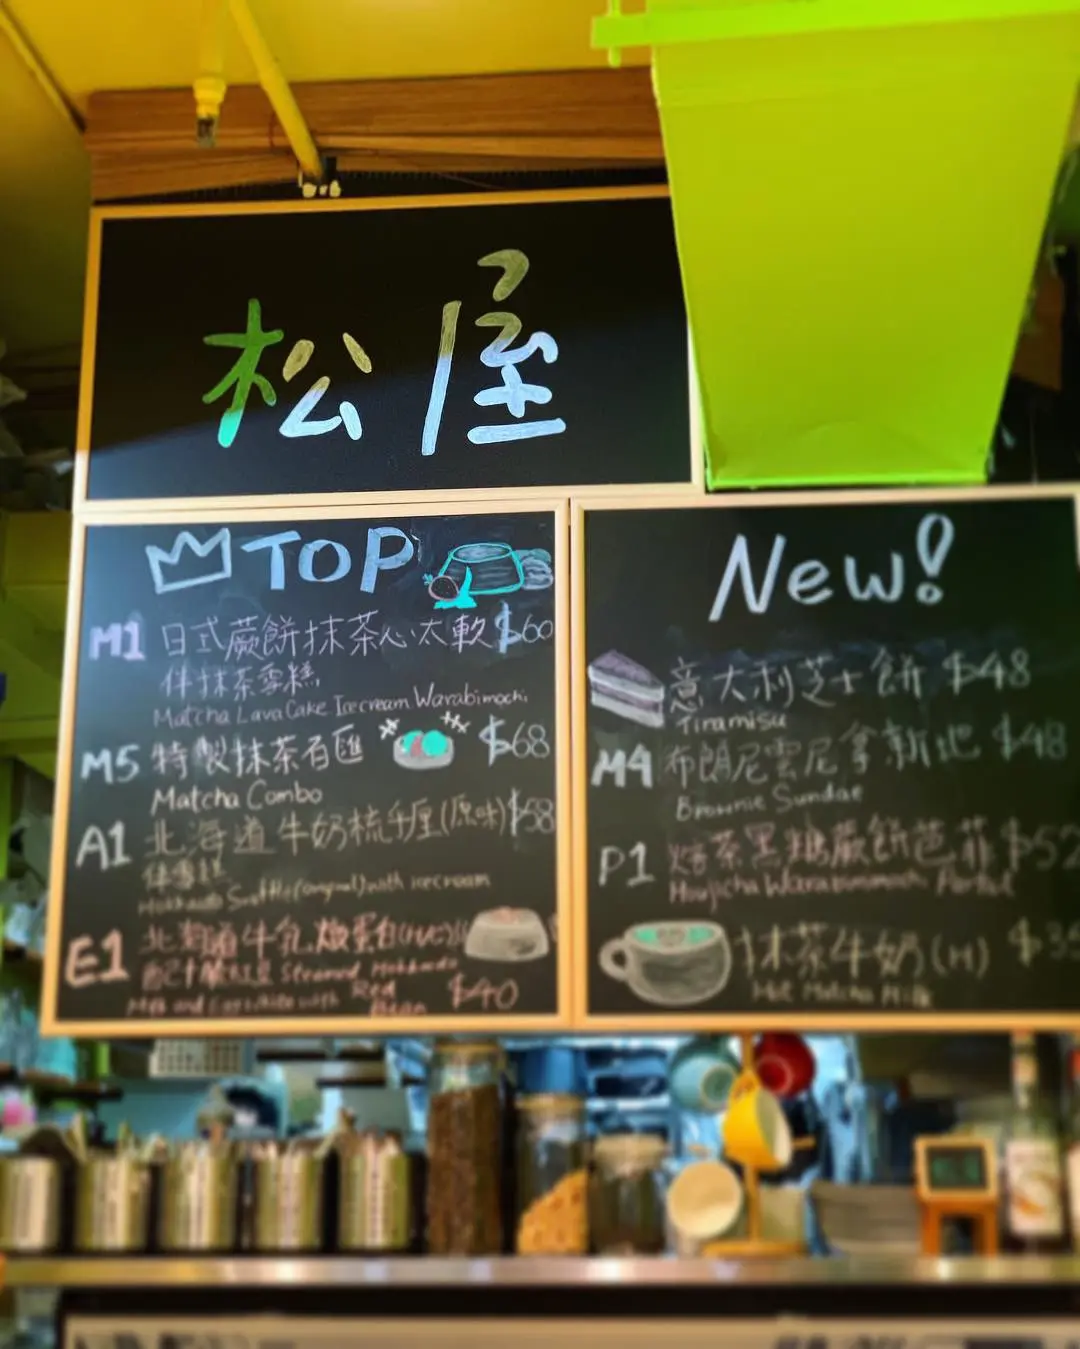 松屋
TOP
M1 日式蕨餅抹茶心太軟 $60
伴抹茶雪糕
Matcha Lava Cake Icecream Warabimochi
M5 特製抹茶百匯 $68
Matcha Combo
A1 北海道牛奶梳乎厘(原味) $58
伴雪糕
Hokkaido Souffle(original) with icecream
E1 北海道牛乳燉蛋白
Steamed Hokkaido
Milk and Egg White with Red
Bean $40
New!
意大利芝士餅 $48
Tiramisu
M4 布朗尼雲尼拿新地 $48
Brownie Sundae
P1 焙茶黑糖蕨餅芭菲 $52
Houjicha Warabimochi Parfait
抹茶牛奶(H)
Hot Matcha Milk